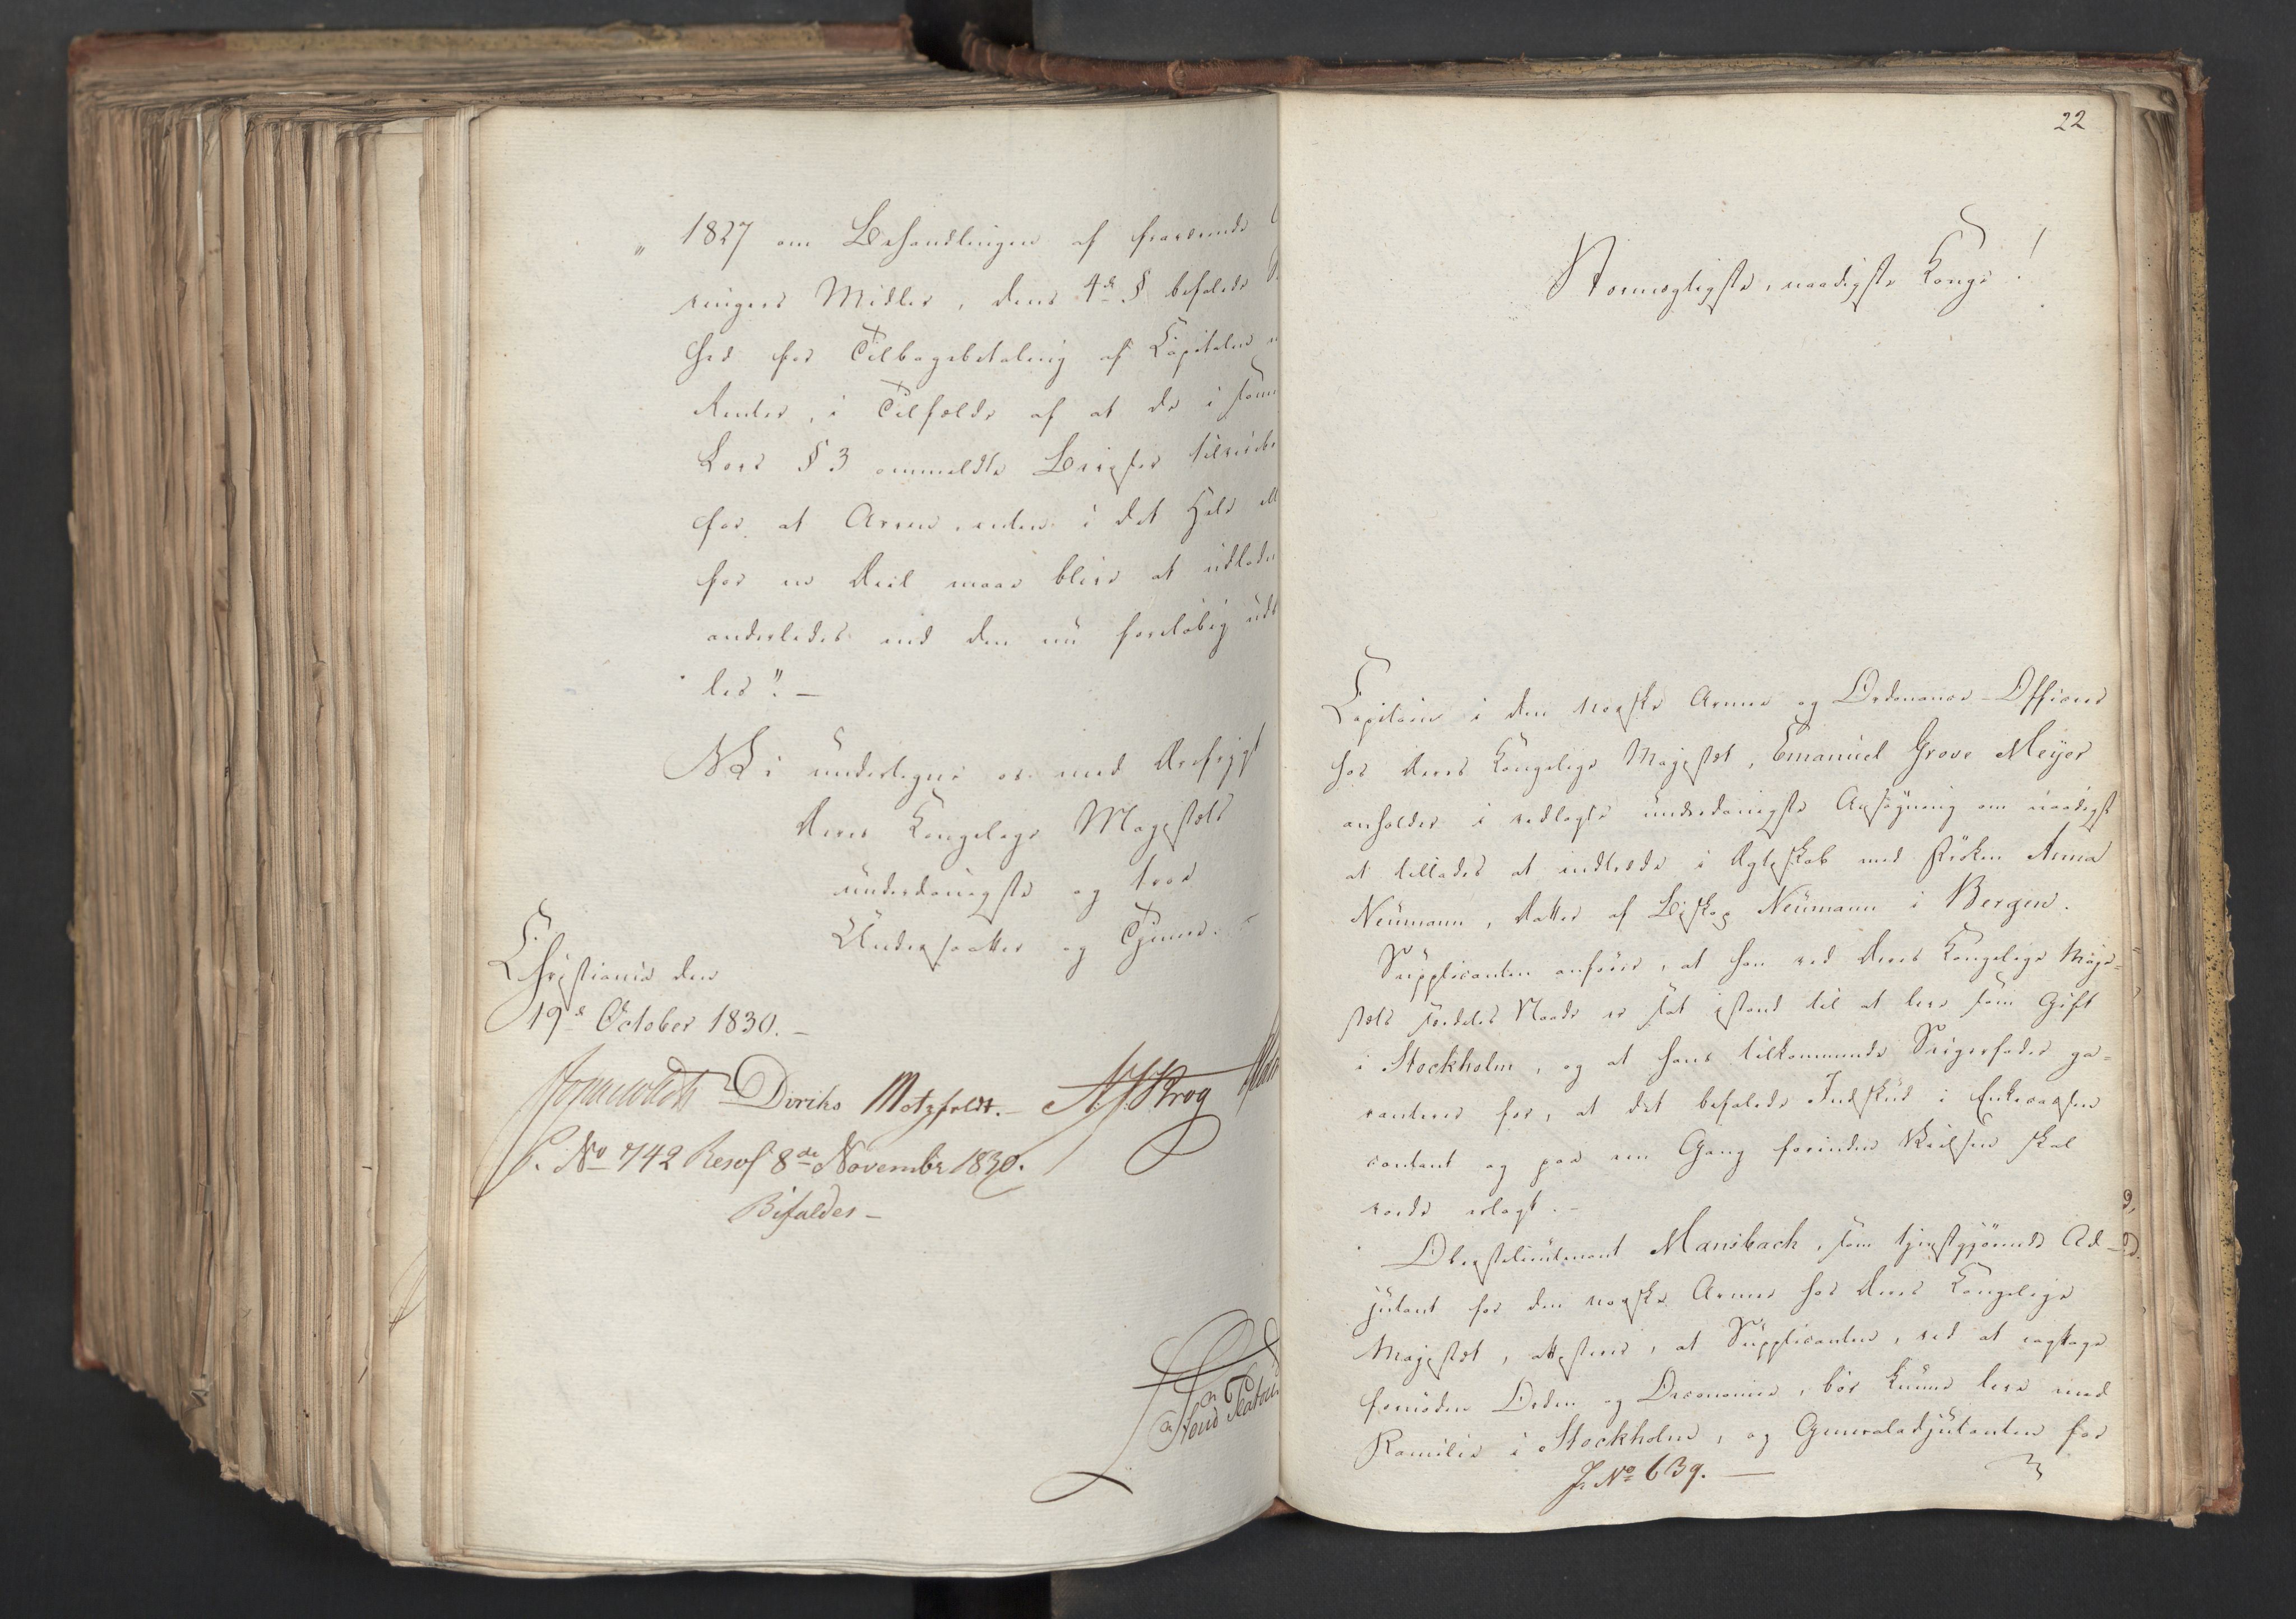 " 1827 om Behandlingen af fraværende
ringers Midler, dens 4de § befalede
hed for Tilbagebetaling af Capitalen
Renter, i Tilfælde af at de i samme
Lovs § 3 ommeldte Beviser tilveiebr
for at Arven enten i det Hele ell
for en Deel maae blive at udlodde
anderledes end den nu foreløbig udd
les". —
Vi undertegne os med Ærefrygt
Deres Kongelige Majestæts
underdanigste og troe
Undersaatter og Tjenere. –
Christiania den
19de October 1830. –
Sommerhielm Diriks Motzfeldt. – N. J. Krog
P. No 742 Resol 8de Novembr 1830.
Bifaldes –
22
Stormægtigste, naadigste Konge!
Capitain i den norske Armee og Ordonance-Officeer
hos Deres Kongelige Majestæt, Emanuel Grove Meyer
anholder i vedlagte underdanigste Ansøgning om naadigst
at tillades at indtræde i Ægteskab med Frøken Anna
Neümann, Datter af Biskop Neümann i Bergen.
Supplicanten anfører, at han ved Deres Kongelige Maje=
stæts særdeles Naade er sat istand til at leve som Gift
i Stockholm, og at hans tilkommende Svigerfader ga=
ranterer for, at det befalede Indskud i Enkecassen
contant og paa een Gang forinden Vielsen skal
vorde erlagt. –
Oberstlieutenant Mansbach, som tjenstgjørende Ad=
jutant for den norske Armee hos Deres Kongelige
Majestæt, attesterer, at Supplicanten, ved at iagttage
fornøden Orden og Oeconomie, bør kunne leve med
Familie i Stockholm, og Generaladjutanten for
J. No 639. —